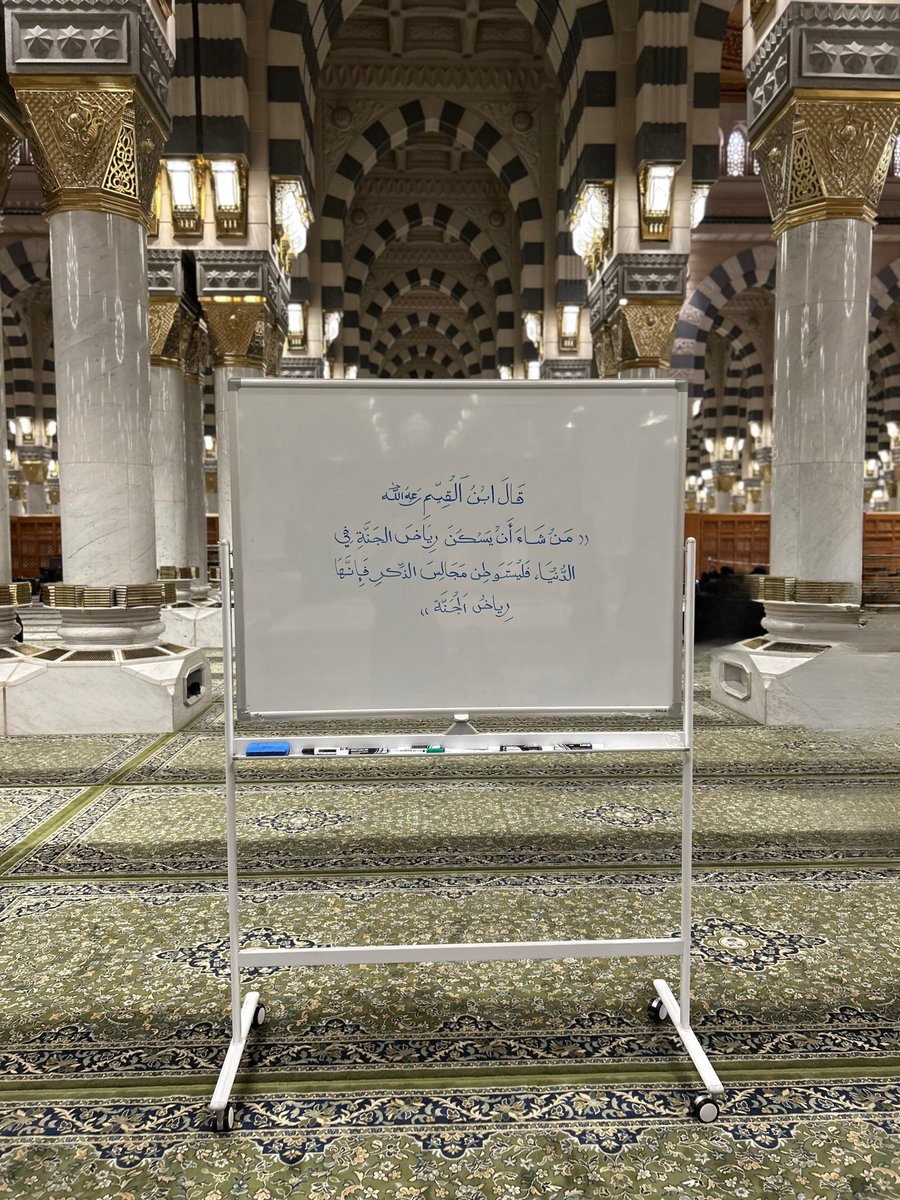 قَالَ ابْنُ الْقَيِّمِ رَحِمَهُ اللَّه
(( مَنْ شَاءَ أَنْ يَسْكُنَ رِيَاضَ الجَنَّةِ فِي
الدُّنْيَا، فَلْيَسْتَوطِن مَجَالِسَ الذِّكْرِ فَإِنَّهَا
رِيَاضُ الْجَنَّة ))